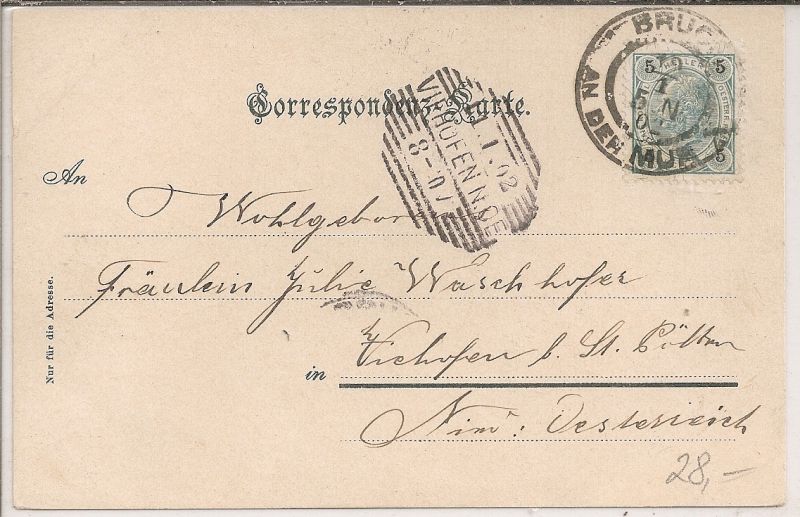 BRUCK
AN DER MUR
5 HELLER 5
5
Correspondenz-Karte.
1.1.02
VIEHOFEN N.OE
8-
An
Wohlgeboren
Fräulein Julie Waschhofer
Viehofen b. St. Pölten
in
Nied: Oesterreich
Nur für die Adresse.
28,–